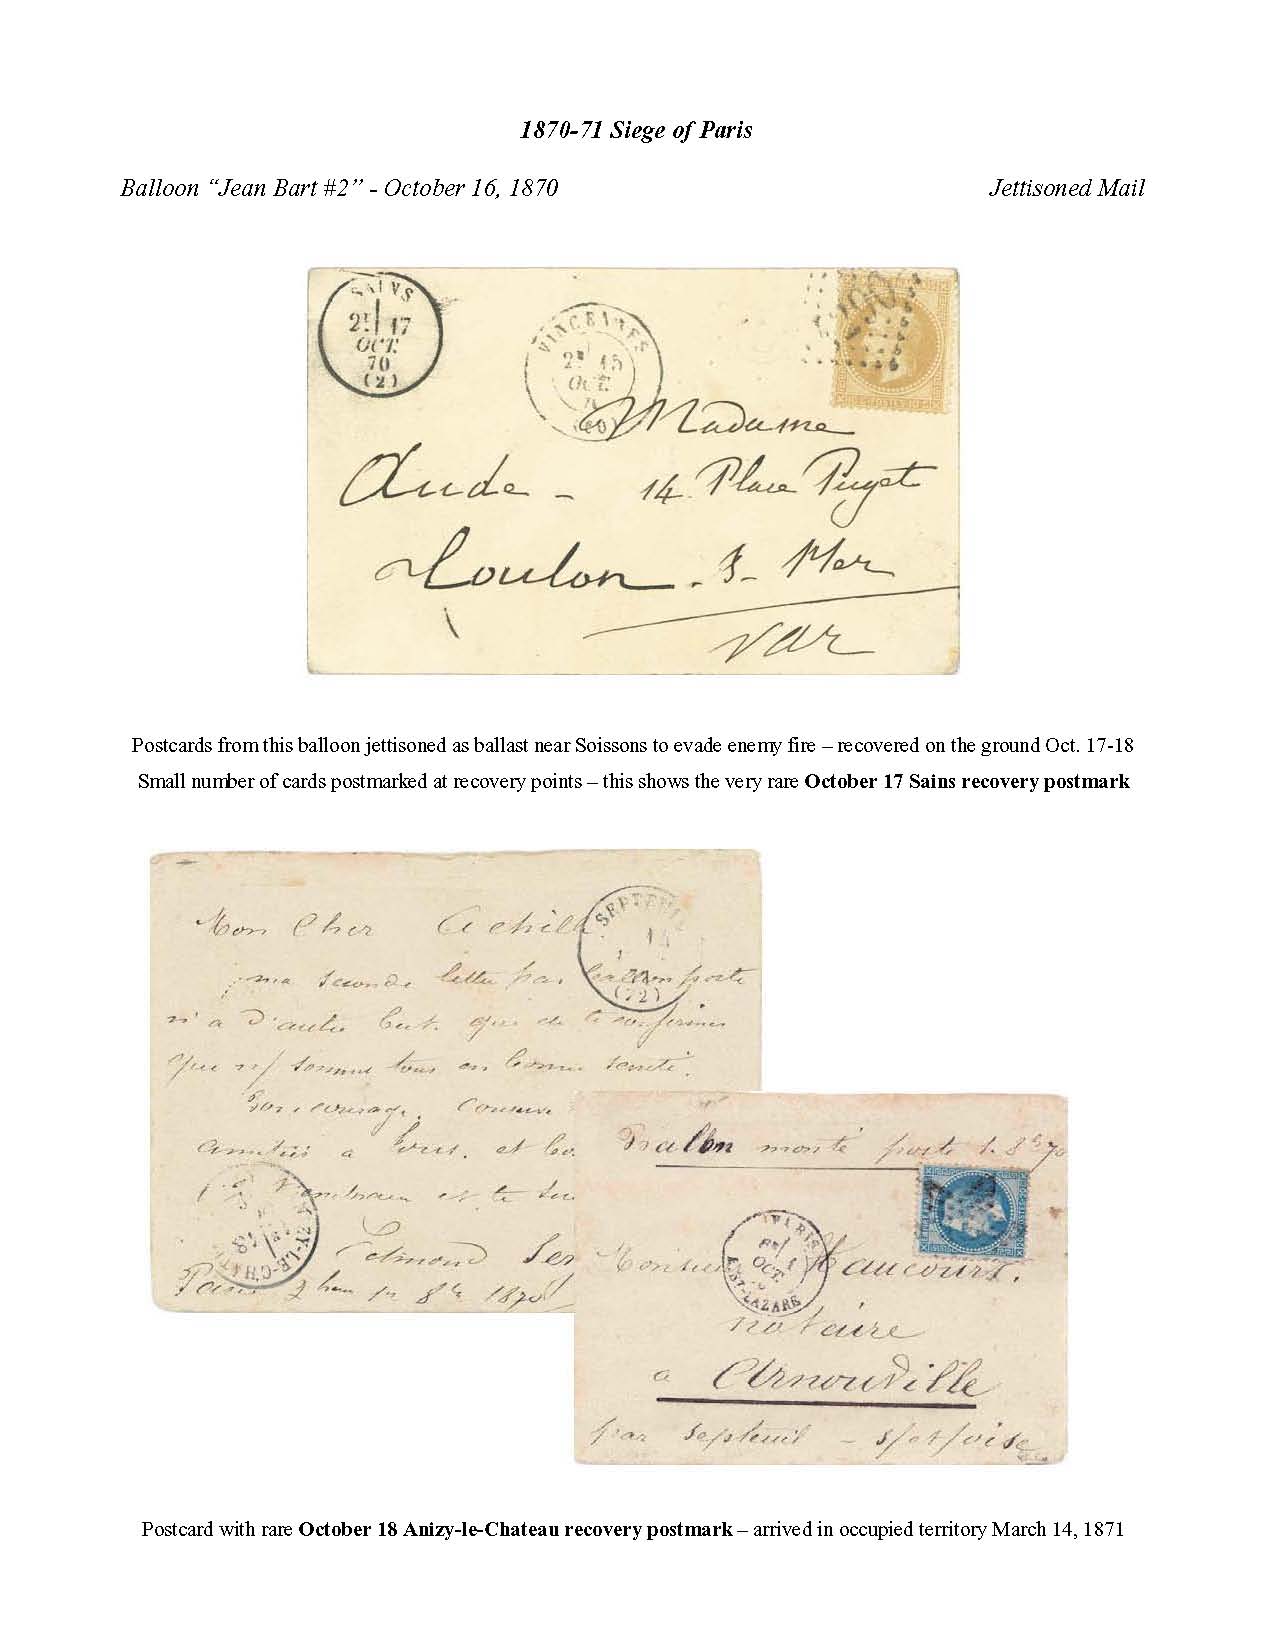 1870-71 Siege of Paris
Balloon “Jean Bart #2” - October 16, 1870 Jettisoned Mail
SAINS
2E 17
OCT.
70
(2)
VINCENNES
2E 15
OCT.
Madame
Aude - 14 Place Puget
Toulon - s - Mer
Var
Postcards from this balloon jettisoned as ballast near Soissons to evade enemy fire – recovered on the ground Oct. 17-18
Small number of cards postmarked at recovery points – this shows the very rare October 17 Sains recovery postmark
Mon Cher Achille
ma seconde lettre par ballon poste
n'a d'autre but que de te confirmer
que ns sommes tous en bonne santé.
Bon courage.
amitiés a tous. et
Edmond
Paris 1er 8bre 1870
SEPTEUIL
14
(72)
18
Ballon monté poste 1. 8bre 70
PARIS
6E 1
OCT.
R. ST-LAZARE
Monsieur Haucourt.
notaire
a Arnouville
par Septeuil - s/et/oise
Postcard with rare October 18 Anizy-le-Chateau recovery postmark – arrived in occupied territory March 14, 1871